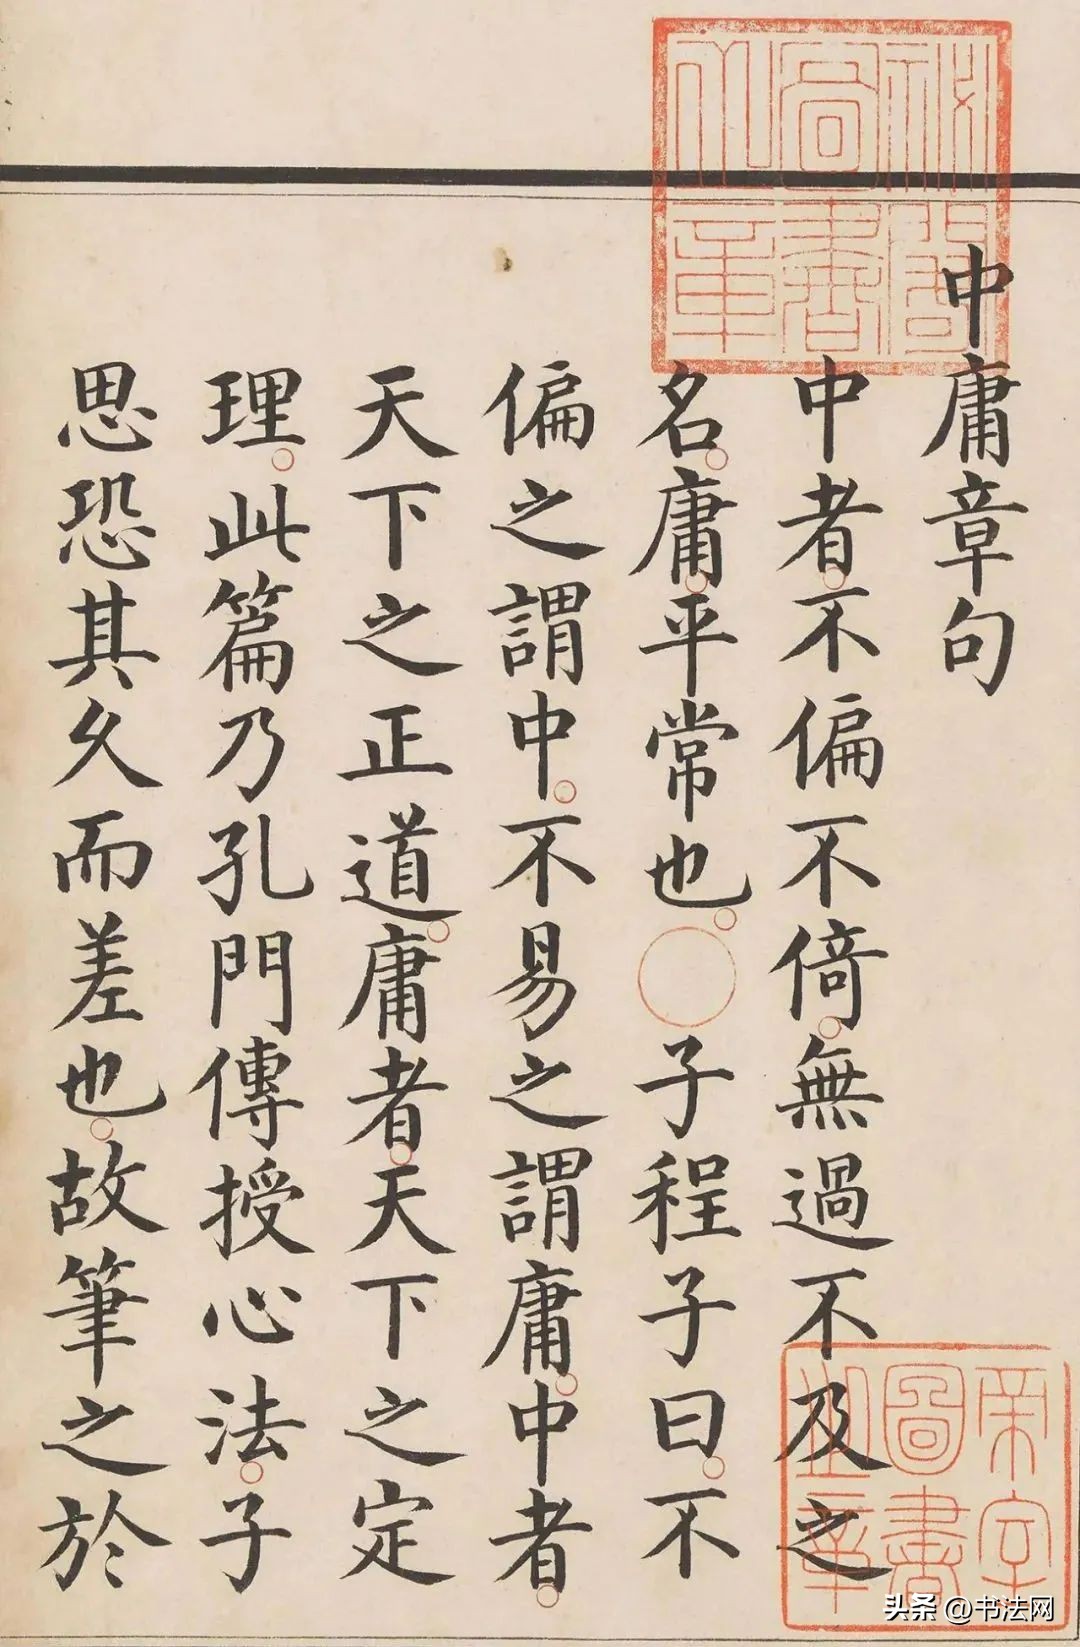 中庸章句
中者不偏不倚無過不及之
名庸平常也子程子曰不
偏之謂中不易之謂庸中者
天下之正道庸者天下之定
理此篇乃孔門傳授心法子
思恐其久而差也故筆之於
頭条 @书法网